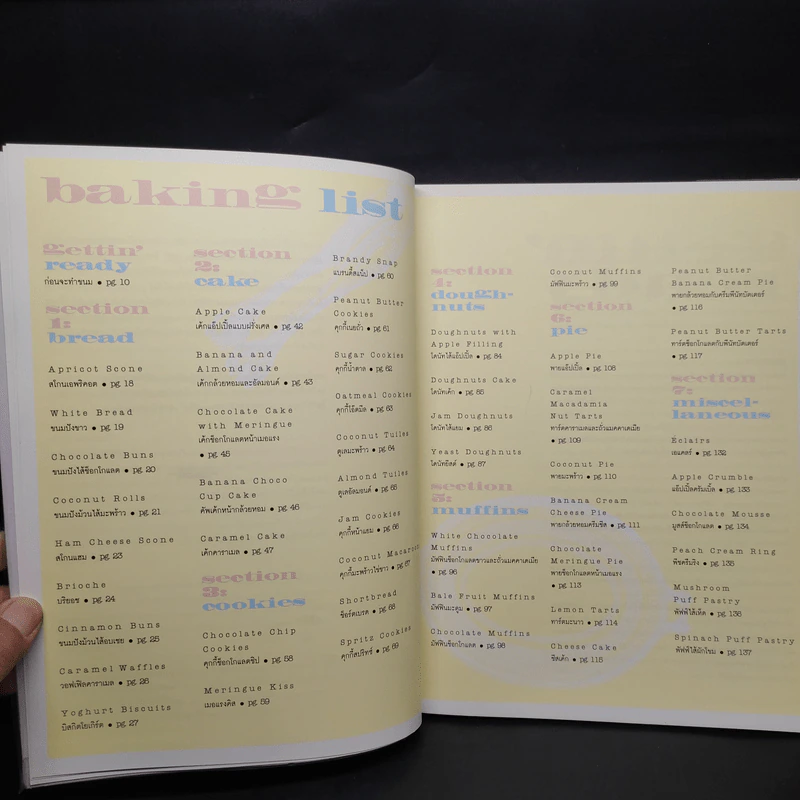 baking list
gettin'
ready
ก่อนจะทำขนม ● pg. 10
section
1:
bread
Apricot Scone
สโกนเอพริคอต ● pg. 18
White Bread
ขนมปังขาว ● pg. 19
Chocolate Buns
ขนมปังไส้ช็อกโกแลต ● pg. 20
Coconut Rolls
ขนมปังม้วนไส้มะพร้าว ● pg. 21
Ham Cheese Scone
สโกนแฮม ● pg. 23
Brioche
บริยอช ● pg. 24
Cinnamon Buns
ขนมปังม้วนไส้อบเชย ● pg. 25
Caramel Waffles
วอฟเฟิลคาราเมล ● pg. 26
Yoghurt Biscuits
บิสกิตโยเกิร์ต ● pg. 27
section
2:
cake
Apple Cake
เค้กแอ๊ปเปิ้ลแบบฝรั่งเศส ● pg. 42
Banana and
Almond Cake
เค้กกล้วยหอมและอัลมอนด์ ● pg. 43
Chocolate Cake
with Meringue
เค้กช็อกโกแลตหน้าเมอแรง
● pg. 45
Banana Choco
Cup Cake
คัพเค้กหน้ากล้วยหอม ● pg. 46
Caramel Cake
เค้กคาราเมล ● pg. 47
section
3:
cookies
Chocolate Chip
Cookies
คุกกี้ช็อกโกแลตชิป ● pg. 58
Meringue Kiss
เมอแรงคิส ● pg. 59
Brandy Snap
แบรนดี้สแน็ป ● pg. 60
Peanut Butter
Cookies
คุกกี้เนยถั่ว ● pg. 61
Sugar Cookies
คุกกี้น้ำตาล ● pg. 62
Oatmeal Cookies
คุกกี้โอ๊ตมีล ● pg. 63
Coconut Tuiles
ตูเลมะพร้าว ● pg. 64
Almond Tuiles
ตูเลอัลมอนด์ ● pg. 65
Jam Cookies
คุกกี้หน้าแยม ● pg. 66
Coconut Macaroon
คุกกี้มะพร้าวไข่ขาว ● pg. 67
Shortbread
ช็อร์ตเบรด ● pg. 68
Spritz Cookies
คุกกี้สปริทซ์ ● pg. 69
section
4:
dough-
nuts
Doughnuts with
Apple Filling
โดนัทไส้แอ๊ปเปิ้ล ● pg. 84
Doughnuts Cake
โดนัทเค้ก ● pg. 85
Jam Doughnuts
โดนัทไส้แยม ● pg. 86
Yeast Doughnuts
โดนัทยีสต์ ● pg. 87
section
5:
muffins
White Chocolate
Muffins
มัฟฟินช็อกโกแลตขาวและถั่วแมคคาเดเมีย
● pg. 96
Bale Fruit Muffins
มัฟฟินมะตูม ● pg. 97
Chocolate Muffins
มัฟฟินช็อกโกแลต ● pg. 98
Coconut Muffins
มัฟฟินมะพร้าว ● pg. 99
section
6:
pie
Apple Pie
พายแอ๊ปเปิ้ล ● pg. 108
Caramel
Macadamia
Nut Tarts
ทาร์ตคาราเมลและถั่วแมคคาเดเมีย
● pg. 109
Coconut Pie
พายมะพร้าว ● pg. 110
Banana Cream
Cheese Pie
พายกล้วยหอมครีมชีส ● pg. 111
Chocolate
Meringue Pie
พายช็อกโกแลตหน้าเมอแรง
● pg. 113
Lemon Tarts
ทาร์ตมะนาว ● pg. 114
Cheese Cake
ชีสเค้ก ● pg. 115
Peanut Butter
Banana Cream Pie
พายกล้วยหอมกับครีมพีนัทบัตเตอร์
● pg. 116
Peanut Butter Tarts
ทาร์ตช็อกโกแลตกับพีนัทบัตเตอร์
● pg. 117
section
7:
miscel-
laneous
Éclairs
เอแคลร์ ● pg. 132
Apple Crumble
แอ๊ปเปิ้ลครัมเบิ้ล ● pg. 133
Chocolate Mousse
มูสส์ช็อกโกแลต ● pg. 134
Peach Cream Ring
พีชครีมริง ● pg. 135
Mushroom
Puff Pastry
พัฟฟ์ไส้เห็ด ● pg. 136
Spinach Puff Pastry
พัฟฟ์ไส้ผักโขม ● pg. 137